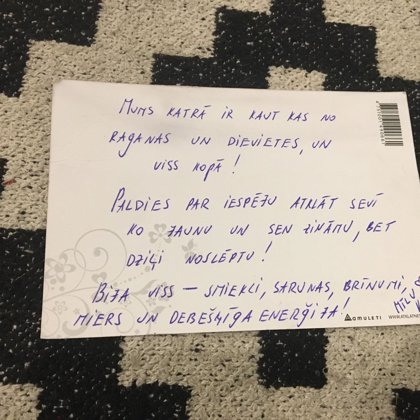 MUMS KATRĀ IR KAUT KAS NO
RAGANAS UN DIEVIETES, UN
VISS KOPĀ!
PALDIES PAR IESPĒJU ATKLĀT SEVĪ
KO JAUNU UN SEN ZINĀMU, BET
DZIĻI NOSLĒPTU!
BIJA VISS – SMIEKLI, SARUNAS, BRĪNUMI,
MIERS UN DEBEŠĶĪGA ENERĢIJA!
AMULETI